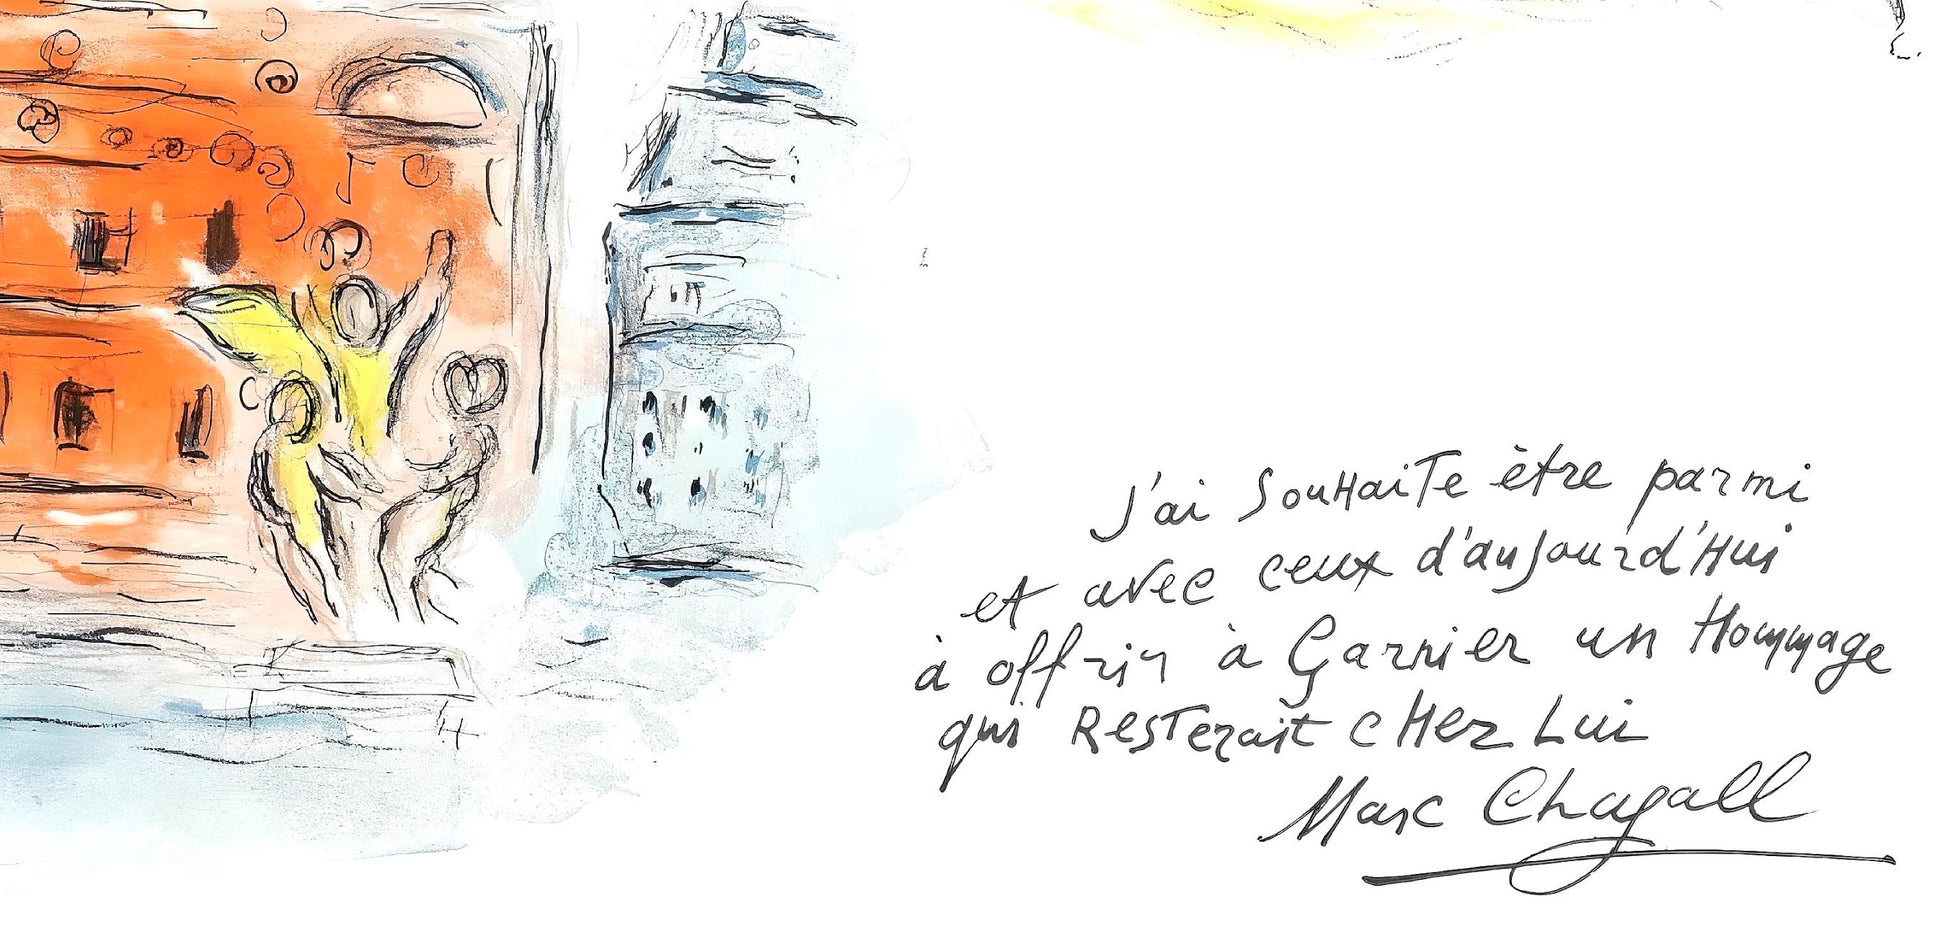 J'ai souhaite être parmi
et avec ceux d'aujourd'hui
à offrir à Garnier un Hommage
qui Resterait chez Lui
Marc Chagall